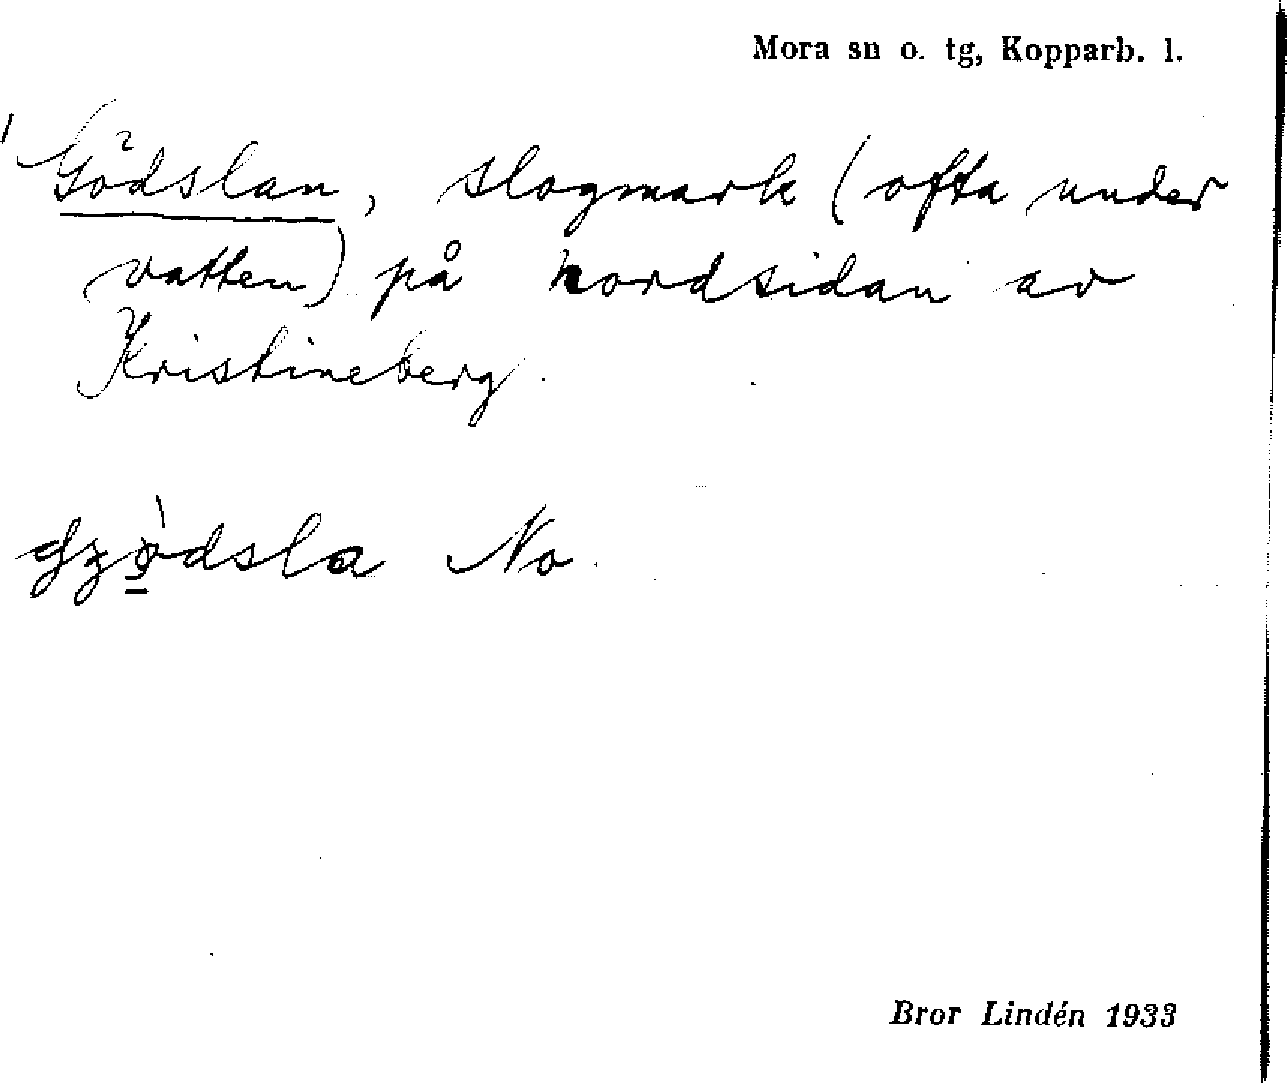 Mora sn o. tg, Kopparb. l.
Gödslan, slogmark (ofta under
vatten) på nordsidan av
Kristineberg.
No
Bror Lindén 1933